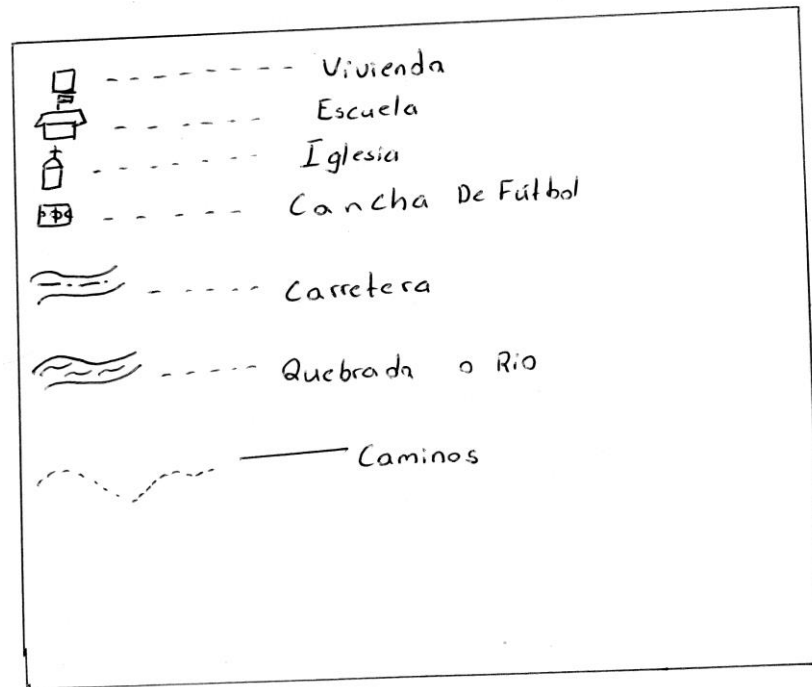 Vivienda
Escuela
Iglesia
Cancha De Fútbol
Carretera
Quebrada o Rio
Caminos